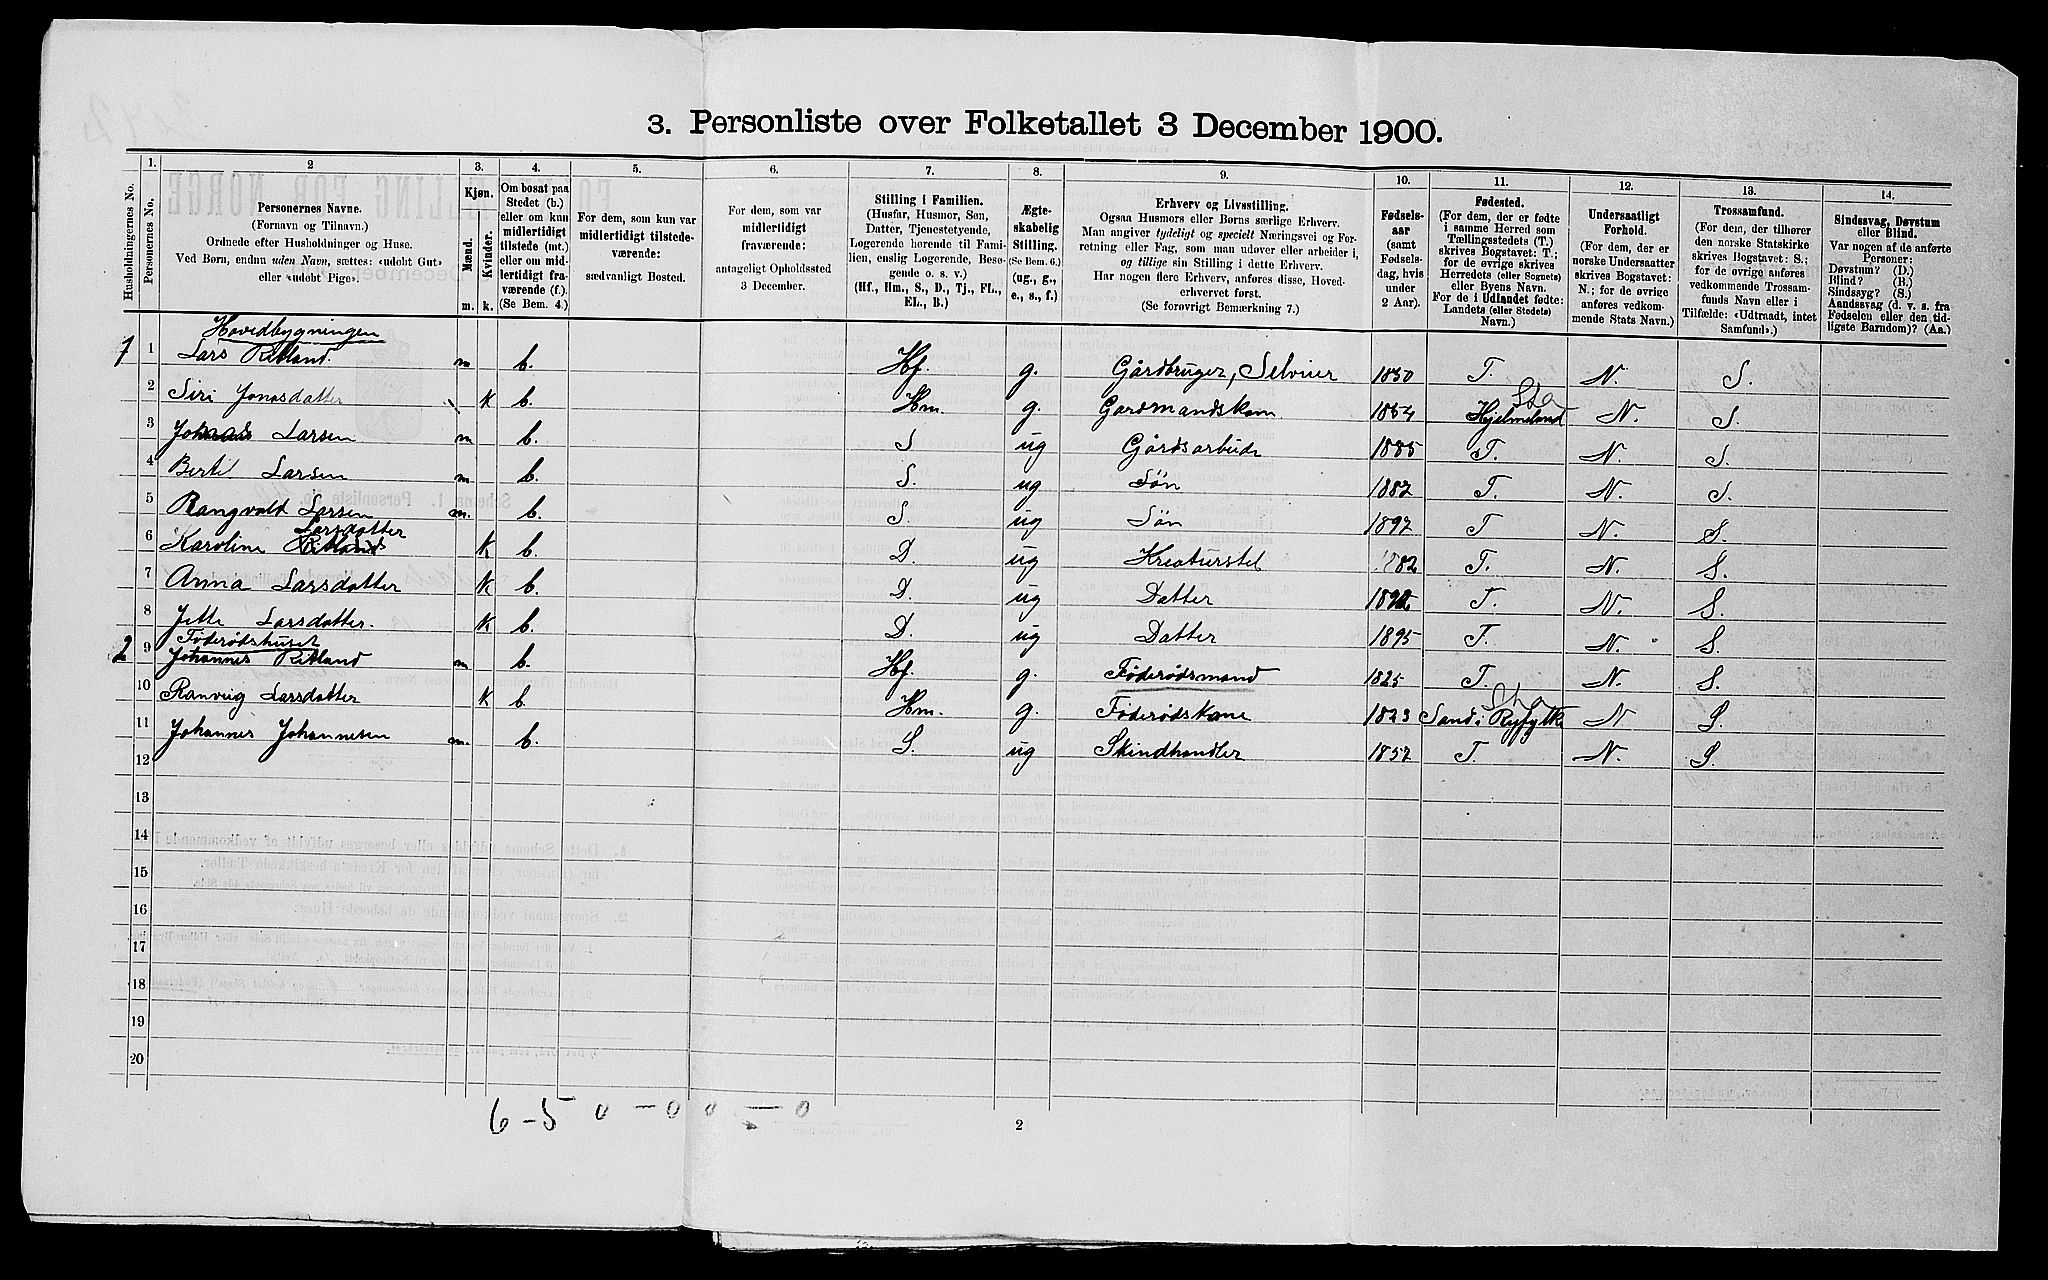 3. Personliste over Folketallet 3 December 1900.
Husholdningernes No.
1. Personernes No.
2
Personernes Navne.
(Fornavn og Tilnavn.)
Ordnede efter Husholdninger og Huse.
Ved Børn, endnu uden Navn, sættes: «udøbt Gut»
eller «udøbt Pige».
3.
Kjøn.
Mænd. Kvinder.
m. k.
4.
Om bosat paa
Stedet (b.)
eller om kun
midlertidigt
tilstede (mt.)
eller om mid-
lertidigt fra-
værende (f.).
(Se Bem. 4.)
5.
For dem, som kun var
midlertidigt tilstede-
værende:
sædvanligt Bosted.
6.
For dem, som var
midlertidigt
fraværende:
antageligt Opholdssted
3 December.
7.
Stilling i Familien.
(Husfar, Husmor, Søn,
Datter, Tjenestetyende,
Logerende hørende til Fami-
lien, enslig Logerende, Besø-
gende o. s. v.)
(Hf., Hm., S., D., Tj., FL.,
EL., B.)
8.
Ægte-
skabelig
Stilling.
(Se Bem. 6.)
(ug., g.,
e., s., f.)
9.
Erhverv og Livsstilling.
Ogsaa Husmors eller Børns særlige Erhverv.
Man angiver tydeligt og specielt Næringsvei og For-
retning eller Fag, som man udøver eller arbeider i,
og tillige sin Stilling i dette Erhverv.
Har nogen flere Erhverv, anføres disse, Hoved-
erhvervet først.
(Se forøvrigt Bemærkning 7.)
10.
Fødsels-
aar
(samt
Fødsels-
dag, hvis
under
2 Aar).
11.
Fødested.
(For dem, der er fødte
i samme Herred som
Tællingsstedets (T.)
skrives Bogstavet: T.;
for de øvrige skrives
Herredets (eller Sognets)
eller Byens Navn.
For de i Udlandet fødte:
Landets (eller Stedets)
Navn.)
12.
Undersaatligt
Forhold.
(For dem, der er
norske Undersaatter
skrives Bogstavet:
N.; for de øvrige
anføres vedkom-
mende Stats Navn.)
13.
Trossamfund.
(For dem, der tilhører
den norske Statskirke
skrives Bogstavet: S.;
for de øvrige anføres
vedkommende Trossam-
funds Navn eller i
Tilfælde: «Udtraadt, intet
Samfund».)
14.
Sindssvag, Døvstum
eller Blind.
Var nogen af de anførte
Personer:
Døvstum? (D.)
Blind? (B.)
Sindssyg? (S.)
Aandssvag (d. v. s. fra
Fødselen eller den tid-
ligste Barndom)? (Aa.)
Hovedbygningen
1 1 Lars Ritland m b. Hf. g. Gårdbruger, Selveier 1850 T. N. S.
2 Siri Jonasdatter k b. Hm. g. Gardmandskone 1854 Hjelmeland Sta N. S.
3 Johannes Larsen m b. S ug Gårdsarbeide 1885 T. N. S.
4 Bertil Larsen m b. S. ug Søn 1887 T. N. S.
5 Rangvald Larsen m. b. S. ug Søn 1897 T N. S.
Larsdatter
6 Karoline Ritland k b. D. ug Kreaturstel 1882 T. N. S.
7 Anna Larsdatter k b. D. ug Datter T. N. S.
8 Jette Larsdatter. k b. D. ug Datter 1895 T. N. S.
Føderådshuset
2 9 Johannes Ritland m b. Hf. g. Føderådsmand 1825 T. N. S.
10 Ranveig Larsdatter k b Hm. g. Føderådskone 1823 Sand i Ryfylke Sta N S.
11 Johannes Johannesen m. b. S. ug Skindhandler 1857 T. N. S.
12
13
14
15
16
17
18
19
20
6 - 5 0 - 0 0 - 0
2